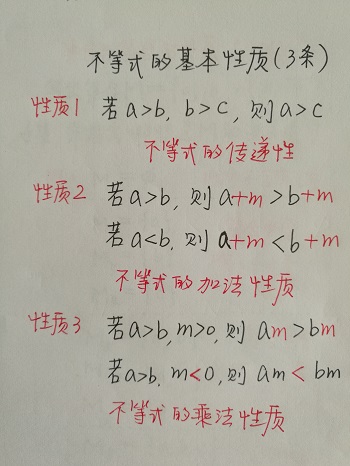 不等式的基本性质(3条)
性质1 若a>b, b>c, 则a>c
不等式的传递性
性质2 若a>b, 则a+m>b+m
若a<b, 则a+m<b+m
不等式的加法性质
性质3 若a>b,m>0,则am>bm
若a>b,m<0,则am<bm
不等式的乘法性质